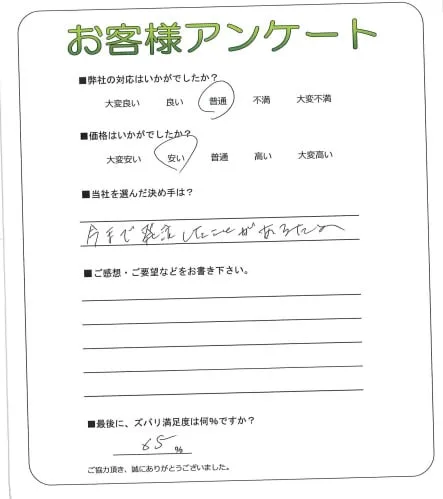 お客様アンケート
■弊社の対応はいかがでしたか?
大変良い 良い 普通 不満 大変不満
■価格はいかがでしたか?
大変安い 安い 普通 高い 大変高い
■当社を選んだ決め手は?
今まで発注したことがあるため
■ご感想・ご要望などをお書き下さい。
■最後に、ズバリ満足度は何%ですか?
65 %
ご協力頂き、誠にありがとうございました。